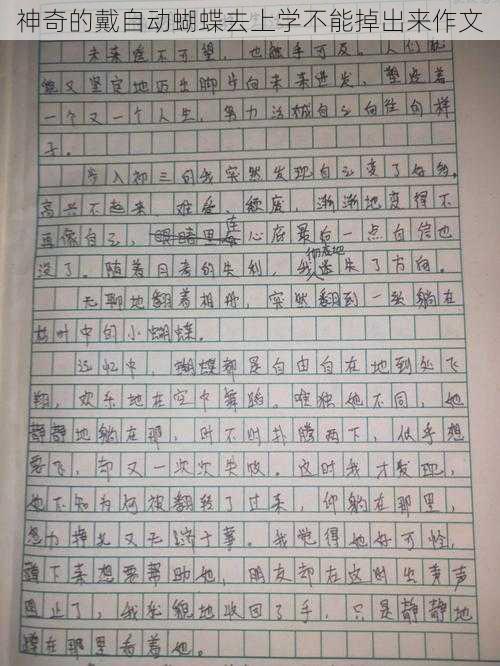 神奇的戴自动蝴蝶去上学不能掉出来作文
未来虽不可望，也触手可及。人们
又坚定地迈出脚步向未来进发，塑造着
一个又一个人生，努力活成自己向往的样
子。
步入初三的我突然发现自己变了好多，
高兴不起来，难受、颓废，渐渐地变得不
再像自己，在心底最后一点自信也
没了。随着月考的失利，我彻底地迷失了方向。
无聊地翻着相册，突然翻到一张躺在
树叶中的小蝴蝶。
记忆中，蝴蝶都是自由自在地到处飞
翔，欢乐地在空中舞蹈。唯独她不同，她
静静地躺在那，时不时扑腾两下，似乎想
要飞，却又一次次失败。这时我才发现，
她不知为何被翻转了过来，仰躺在那里，
努力挣扎又无济于事。我觉得她好可怜，
蹲下来想要帮助她，朋友却在这时出声
阻止了，我地收回了手，只是静静地
蹲在那里看着她。